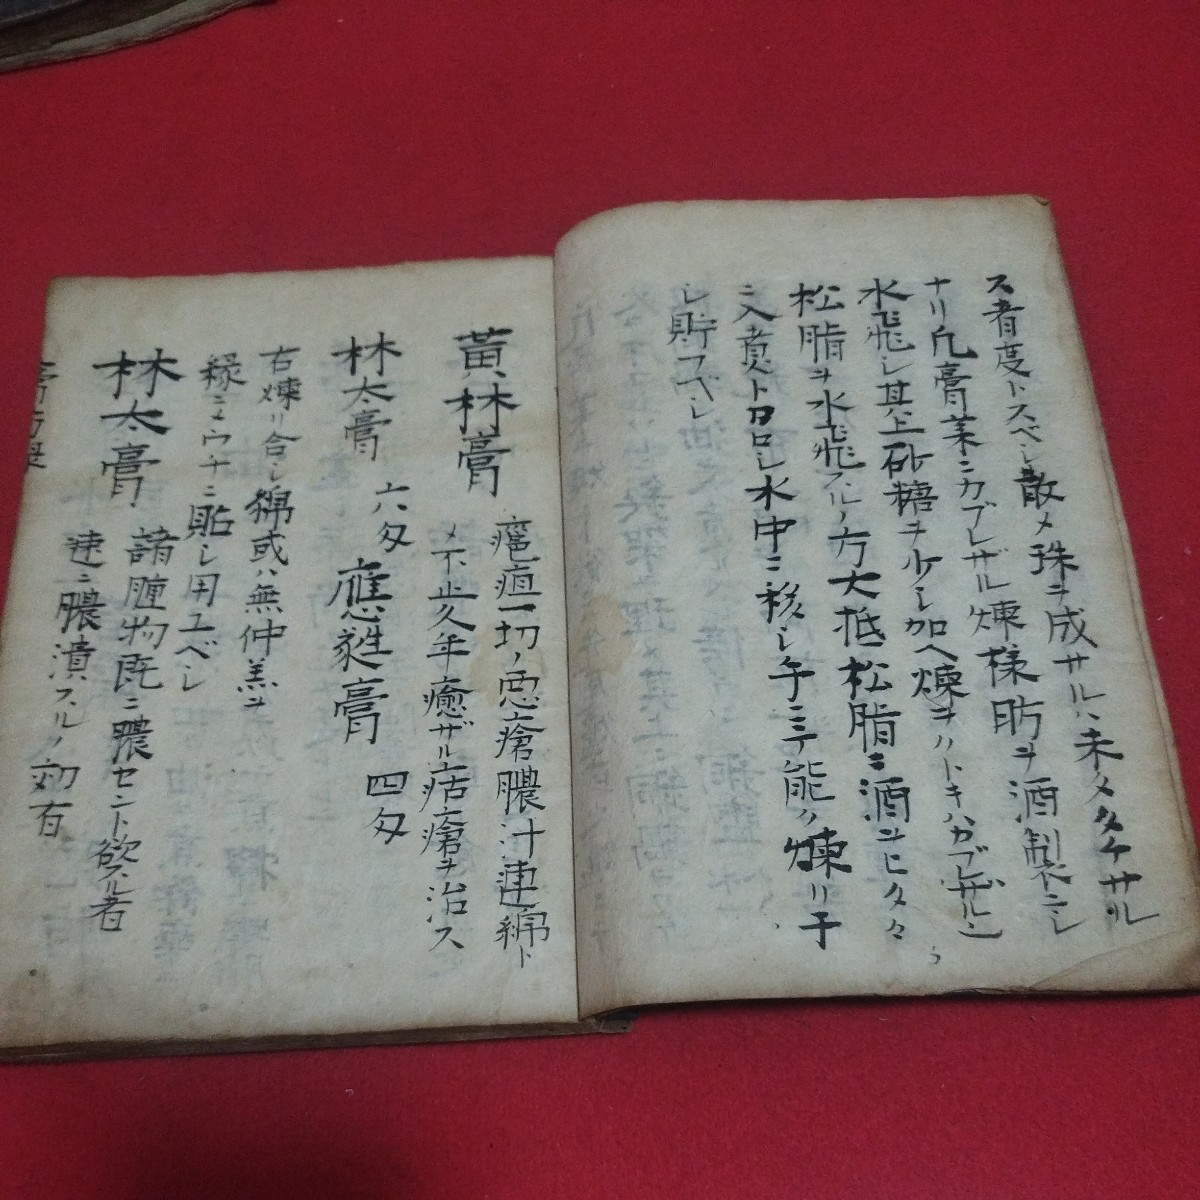 ス者度トスベシ散メ珠ヲ成サルハ未タタケサル
ナリ凡膏薬ニカブレザル煉様昉ヲ酒製ニシ
水飛シ其上砂糖ヲ少シ加ヘ煉ヲハトキハカブレザルノ
松脂ヲ水飛スルノ方大抵松脂ニ酒ヲヒタ々
ニ入煮トロカシ水中ニ移シ手ニテ能ク煉リ干
シ貯フベシ
黄林膏 瘡疽一切ノ悪瘡膿汁連綿ト
メ不止久年癒ザル痼瘡ヲ治ス
林太膏 六匁 應甤膏 四匁
右煉リ合シ綿或ハ無仲羔ヲ
緑ニメウナニ貼シ用ユベシ
林太膏 諸腫物既ニ膿セント欲スル者
速ニ膿潰スルノ効有